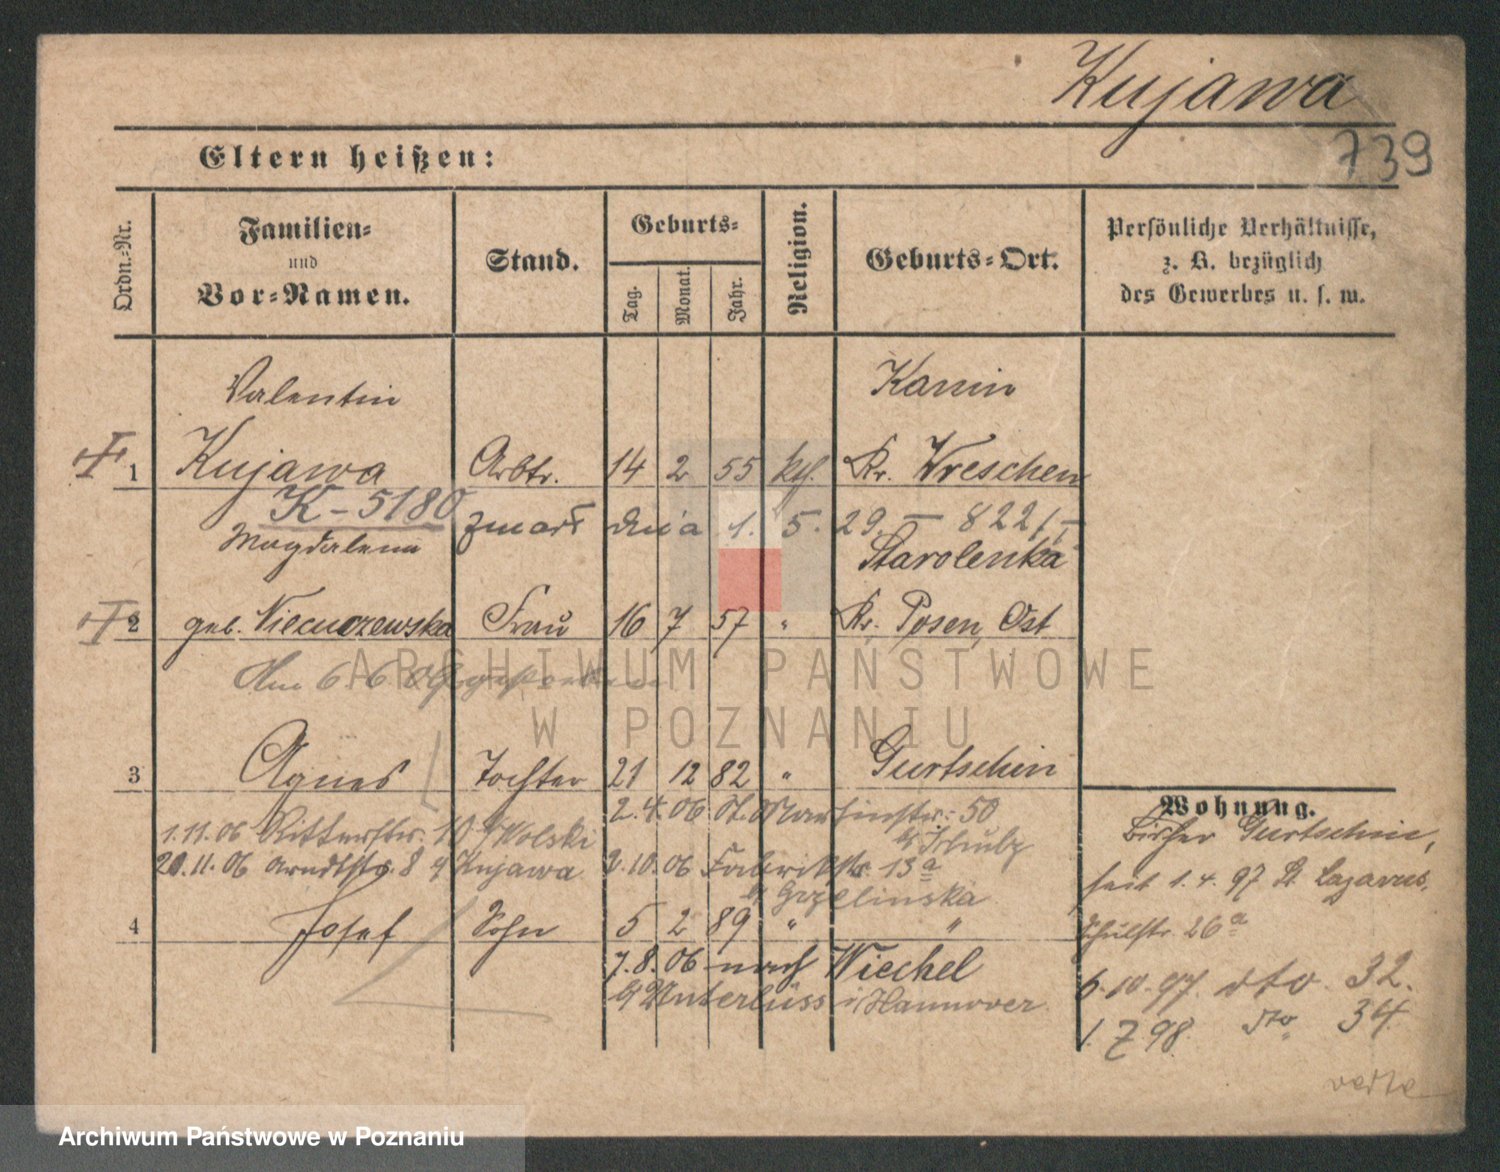 Kujawa
739
Eltern heißen:
Ordn.-Nr.
Familien-
und
Vor-Namen.
Stand.
Geburts-
Tag.
Monat.
Jahr.
Religion.
Geburts-Ort.
Persönliche Verhältnisse,
z. B. bezüglich
des Gewerbes u. s. w.
Valentin Kamin
1 Kujawa Arbtr. 14 2 55 kth. Kr. Wreschen
K-5180 zmarł dnia 1. 5. 29. - 822/-
Magdalena Starolenka
2 geb. Frau 16 7 57 " Kr. Posen, Ost
Am 6.6.09 gestorben
ARCHIWUM PAŃSTWOWE
W POZNANIU
3 Agnes Tochter 21 12 82 " Gurtschin
2.4.06 St. Martinstr. 50
1.11.06 Ritterstr. 10 b/ Wolski
20.11.06 Arndtstr. 8 b/ Kujawa 2.10.06 Fabrikstr. 13a
b/ Grzelinska
4 Josef Sohn 5 2 89 " "
7.8.06 nach Wiechel
b/ Unterlüss i/Hannover
Wohnung.
Bisher Gurtschin,
seit 1.4.97 St. Lazarus,
Schulstr. 26a
6.10.97 dto 32.
1. 7 98. dto 34.
verte
Archiwum Państwowe w Poznaniu